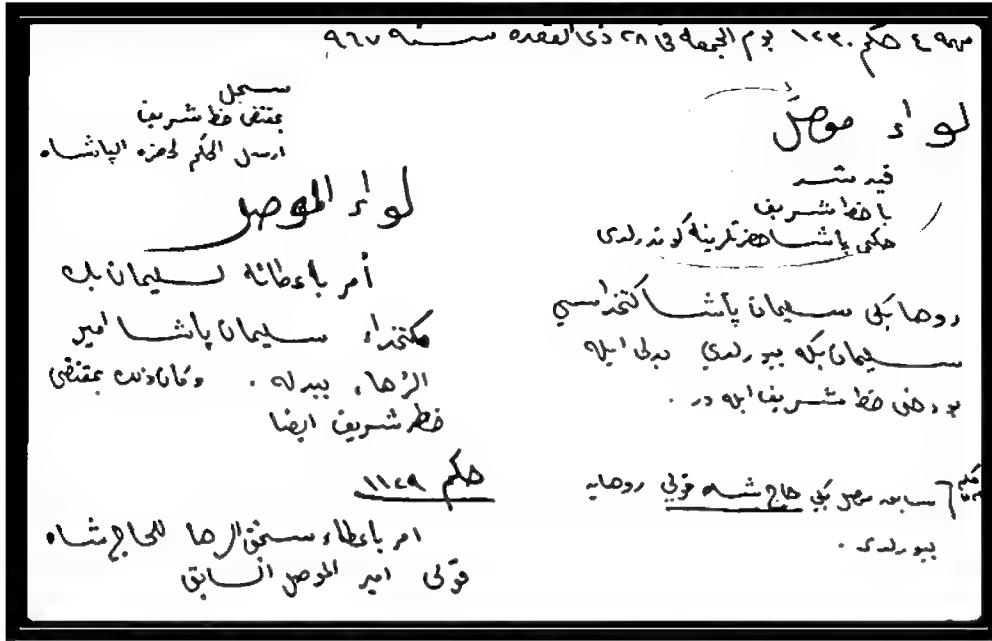 مهمه ٤ حكم ١٢٣٠ يوم الجمعه فى ٢٨ ذى القعده سنه ٩٦٧
لواء موصل
قيد شد
با خط شريف
حكمى پاشا حضرتلرينه كوندرلدى
روحا بكى سليمان پاشا كتخداسى
سليمان بكه بيورلدي بدلى ايله
بو دخى خط شريف ايله در .
سابقه موصل بكى حاج شاه قولي روحايه
بيورلدى .
سجل
بمقتضى خط شريف
ارسل الحكم لحضرة الپاشاه
لواء الموصل
أمر باعطائه لسليمان بك
كتخداء سليمان پاشا امير
الرُّها، ببدله . وكان ذلك بمقتضى
خط شريف ايضا
حكم ١١٢٩
امر باعطاء سنجق الرها للحاج شاه
قولى امير الموصل السابق